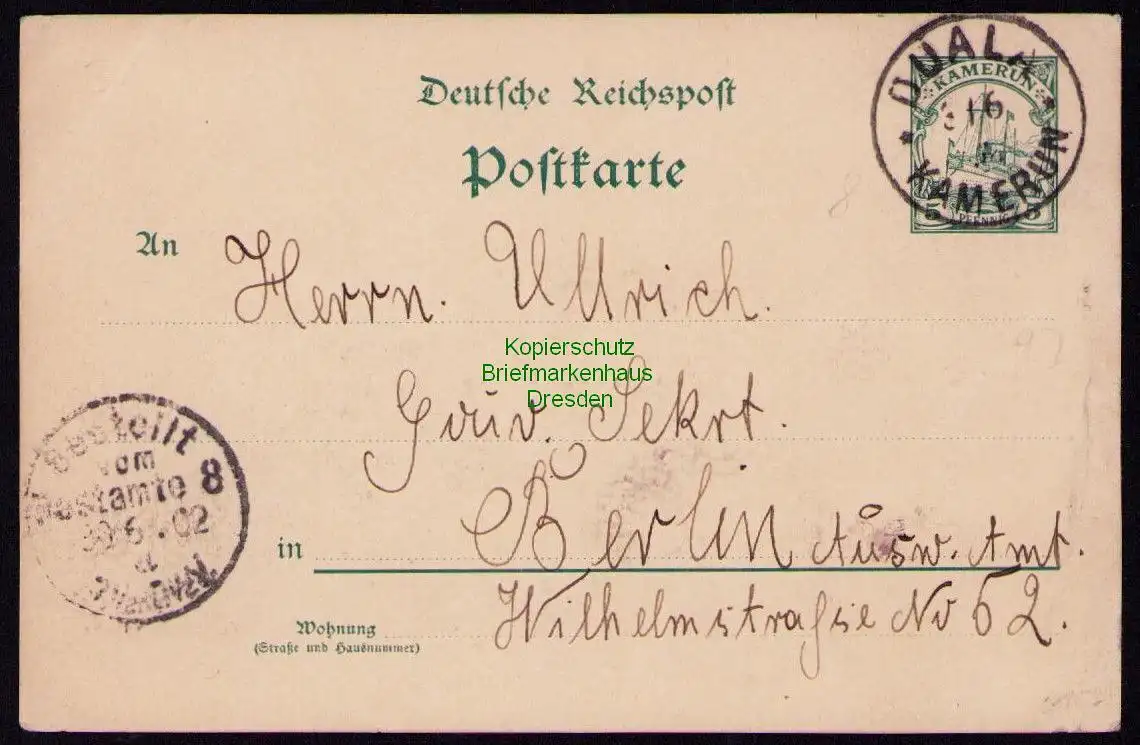 Deutsche Reichspost
DUALA
KAMERUN
KAMERUN
5 PFENNIG 5
Postkarte
8
An Herrn. Ullrich.
Kopierschutz
Briefmarkenhaus
Dresden
Gouv. Sekrt.
Bestellt
vom
Postamte 8
6 . 02
in Berlin Ausw. Amt.
Wilhelmstraße No 62.
Wohnung
(Straße und Hausnummer)